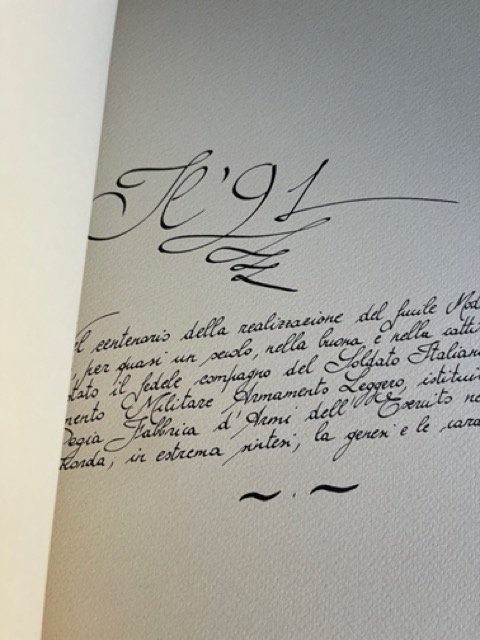 Il '91
el centenario della realizzazione del fucile Mod
per quasi un secolo, nella buona e nella catti
stato il fedele compagno del Soldato Italiano
mento Militare Armamento Leggero, istitui
Regia Fabbrica d'Armi dell'Esercito ne
icorda, in estrema sintesi, la genesi e le cara